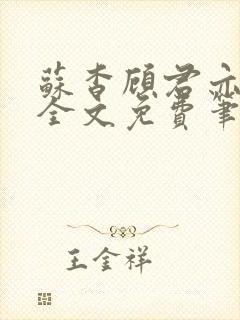 蘇杳顧君亦
全文免費筆
王金祥